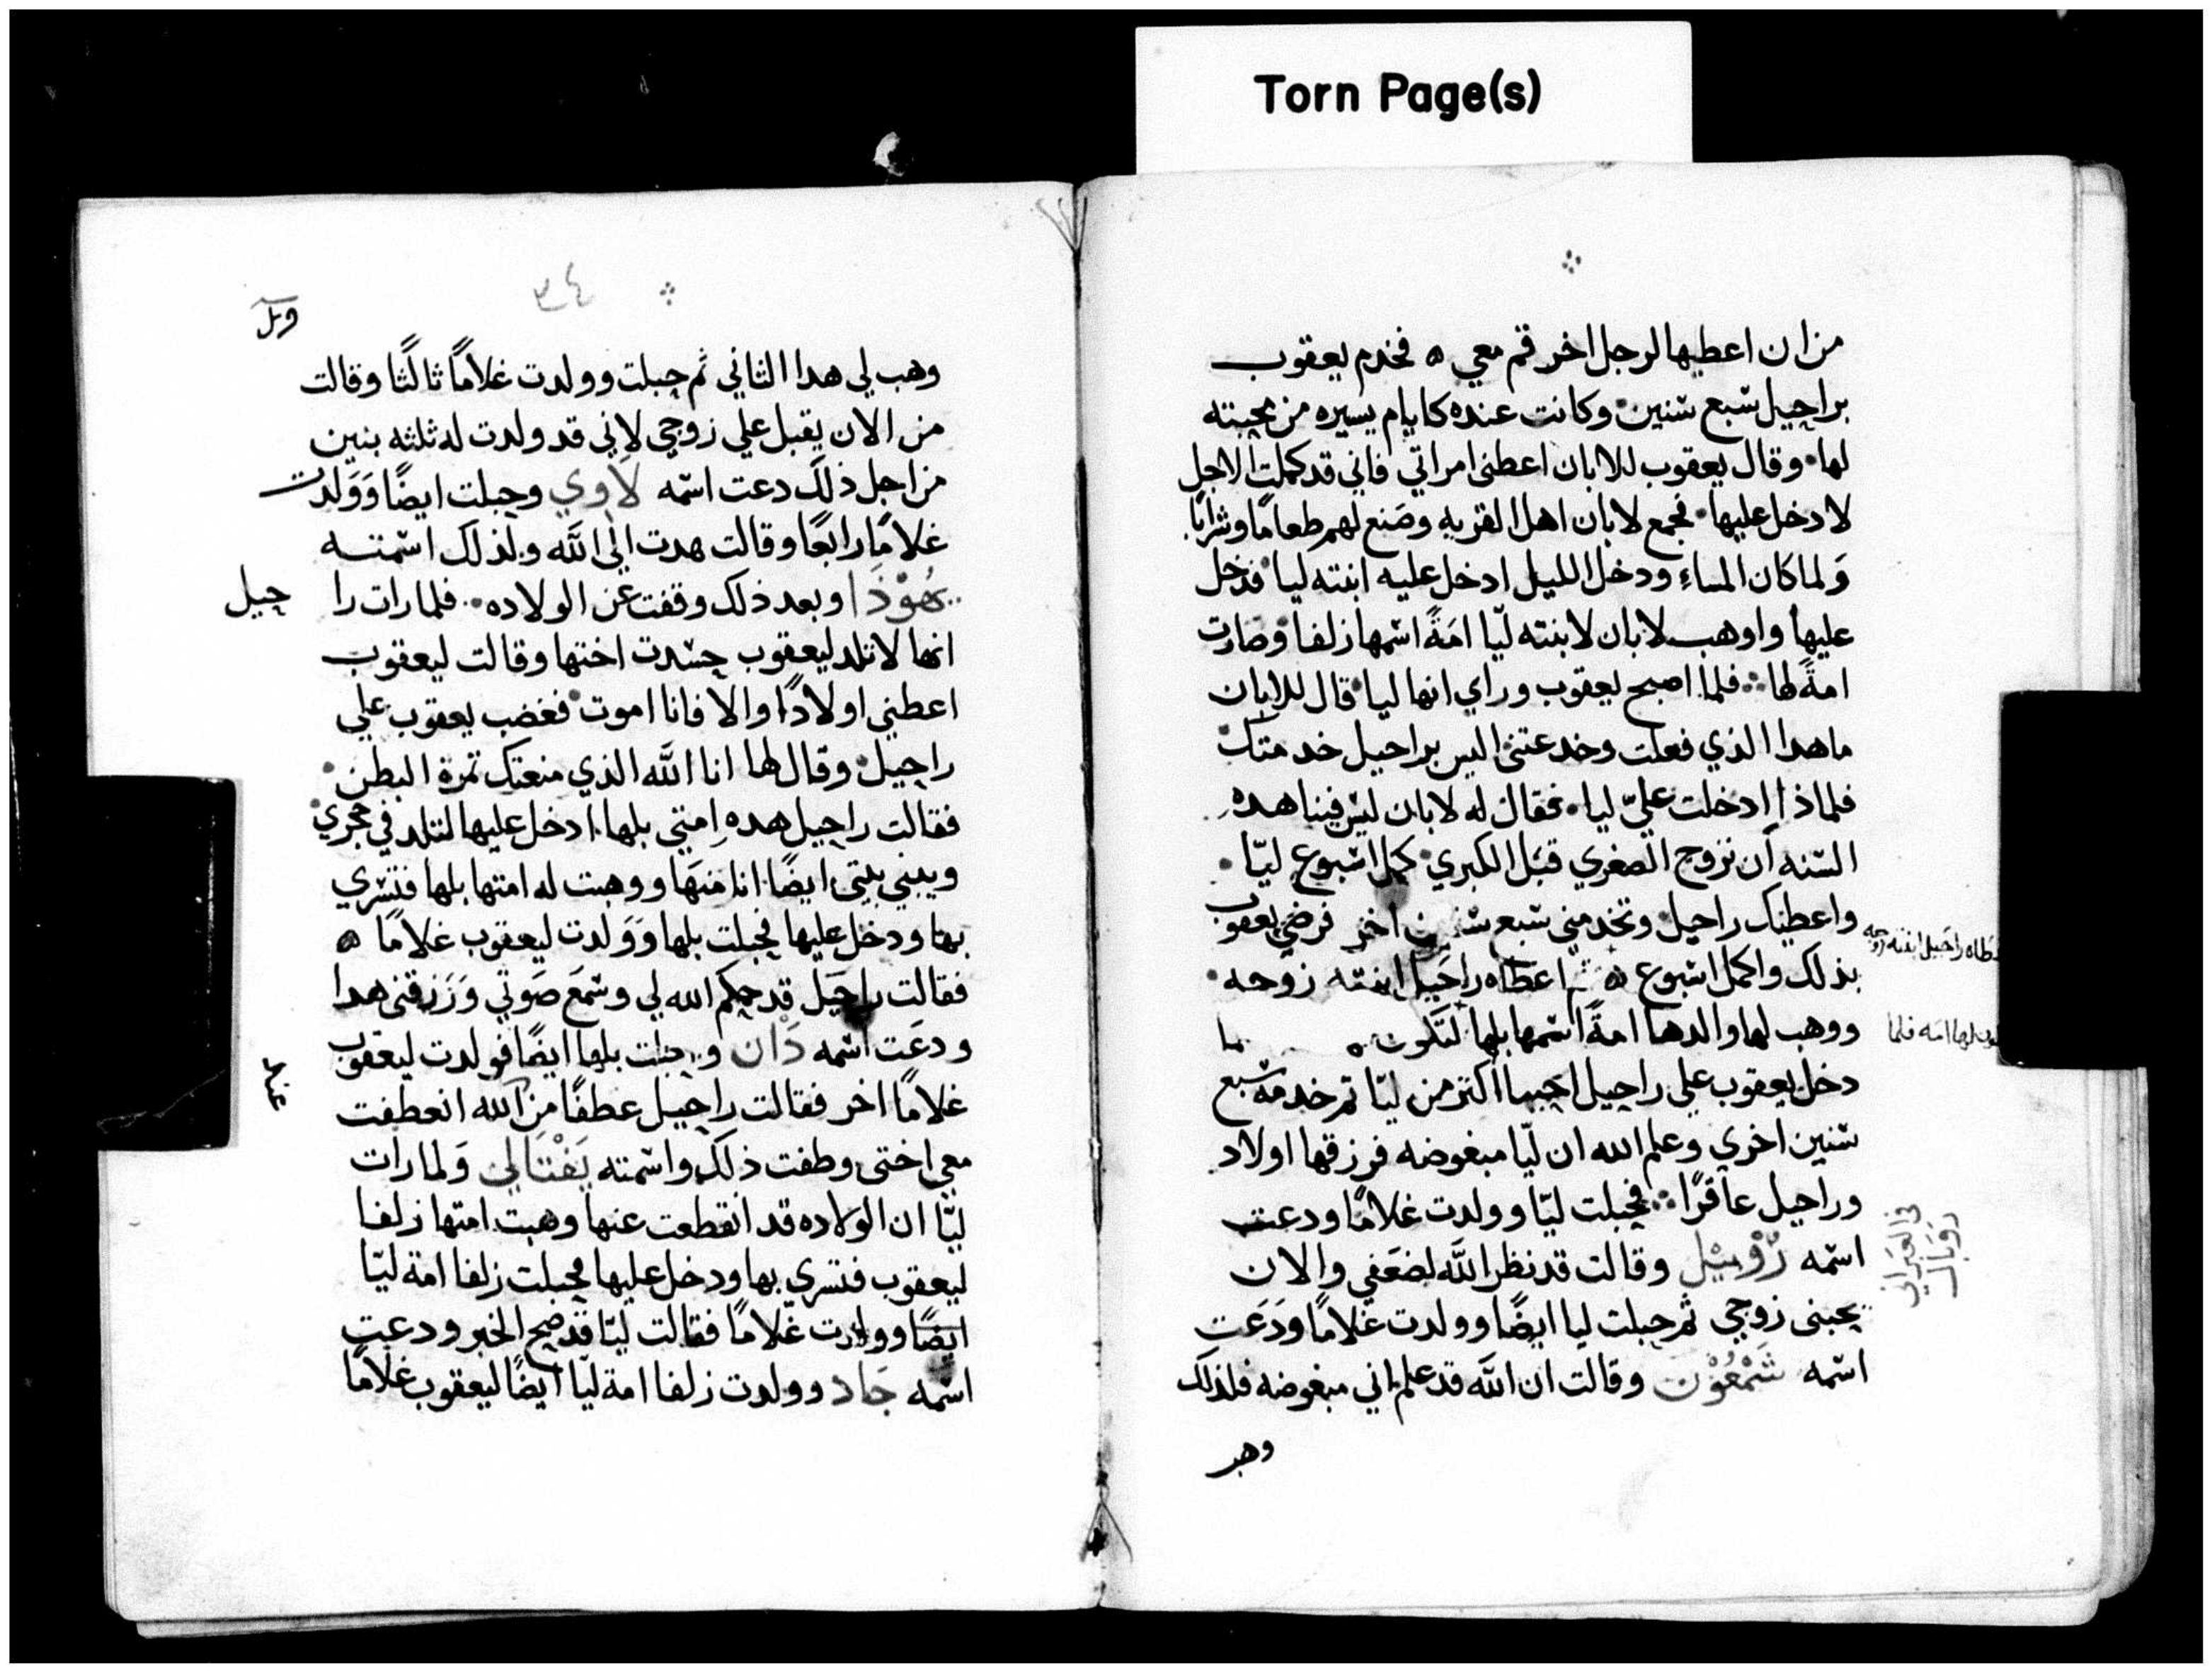 Torn Page(s)
من ان اعطيها لرجل اخر قم معي ه فخدم يعقوب
براحيل سبع سنين وكانت عنده كايام يسيره من محبته
لها وقال يعقوب للابان اعطنى امراتي فاني قد كملت الاجل
لادخل عليها فجمع لابان اهل القريه وصنع لهم طعامًا وشرابًا
وَلما كان المساءِ ودخل الليل ادخل عليه ابنته ليا فدخل
عليها واوهب لابان لابنته ليّا امَةً اسمها زلفا وصارت
امةً لها فلما اصبح يعقوب وراي انها ليا قال للابان
ما هدا الذي فعلت وخدعتنى اليس براحيل خدمتك
فلماذا ادخلت عليّ ليا فقال له لابان ليس فينا هده
السّنه أن نزوج الصغري قبَل الكبري كمل اسبوع ليّا
واعطيك راحيل وتخدمني سبع سنين اخر فرضي يعقوب
بذلك واكمل اسبوع ه ثم اعطاه راحَيل ابنته زوجه
ووهب لها والدها امةً اسمها بلها لتَكون
دخل يعقوب علي راحيل احبها أكتر من ليّا تم خدمه سبع
سنين اخري وعلم الله ان ليّا مبغوضه فرزقها اولاد
وراحيل عاقرًا فحبلت ليّا وولدت غلامًا ودعت
اسمه رُوْبيْل وقالت قد نظر اللَّه لضعَفي والان
يحبنى زوجي ثم حبلت ليا ايضًا وولدت غلامًا ودَعَت
اسمه شَمْعُوْن وقالت ان اللَّه قد علم اني مبغوضه فلذلك
وهب
راحَيل ابنته زوجه
لها امَه فلما
في العبراني
روَبَان
٣٤
وهب لي هدا الثاني ثم حبلت وولدت غلامًا ثالثًا وقالت
من الان يقبل علي زوجي لاني قد ولدت له ثلثه بنين
من اجل ذلكَ دعت اسمه لاَوي وحبلت ايضًا وَوَلدت
غلامًا رابعًا وقالت هدت الي اللَّه ولذلك اسمته
يهُوْذَا وبعد ذلك وقفت عن الولاده فلما رات را
حيل
انها لا تلد ليعقوب حسَدت اختها وقالت ليعقوب
اعطني اولادًا والا فانا اموت فغضب يعقوب علي
راحيل وقال لها انا اللَّه الذي منعتك تمرة البطن
فقالت راحيل هده امتي بلها ادخل عليها لتلد في حجري
ويبني بيتى ايضًا انا منهَا ووهبت له امتها بلها فتسري
بها ودخل عليها فحبلت بلها وَوَلدت ليعقوب غلامًا ه
فقالت راحَيل قد حكم الله لي وسمعَ صَوتي وَرَزقنى هدا
ودعَت اسمه دَان وحبلت بلها ايضًا فولدت ليعقوب
غلامًا اخر فقالت راحيل عطفًا من اللَّه انعطفت
عند
مع اختى وطفت ذلك واسمته يَفْتَالي وَلما رات
ليّا ان الولاده قد انقطعت عنها وهبت امتها زلفا
ليعقوب فتسري بها ودخل عليها فحبلت زلفا امة ليّا
ايضًا وولدت غلامًا فقالت ليّا قد صح الخبر ودعت
اسمه جَاد وولدت زلفا امة ليّا ايضًا ليعقوب غلامًا